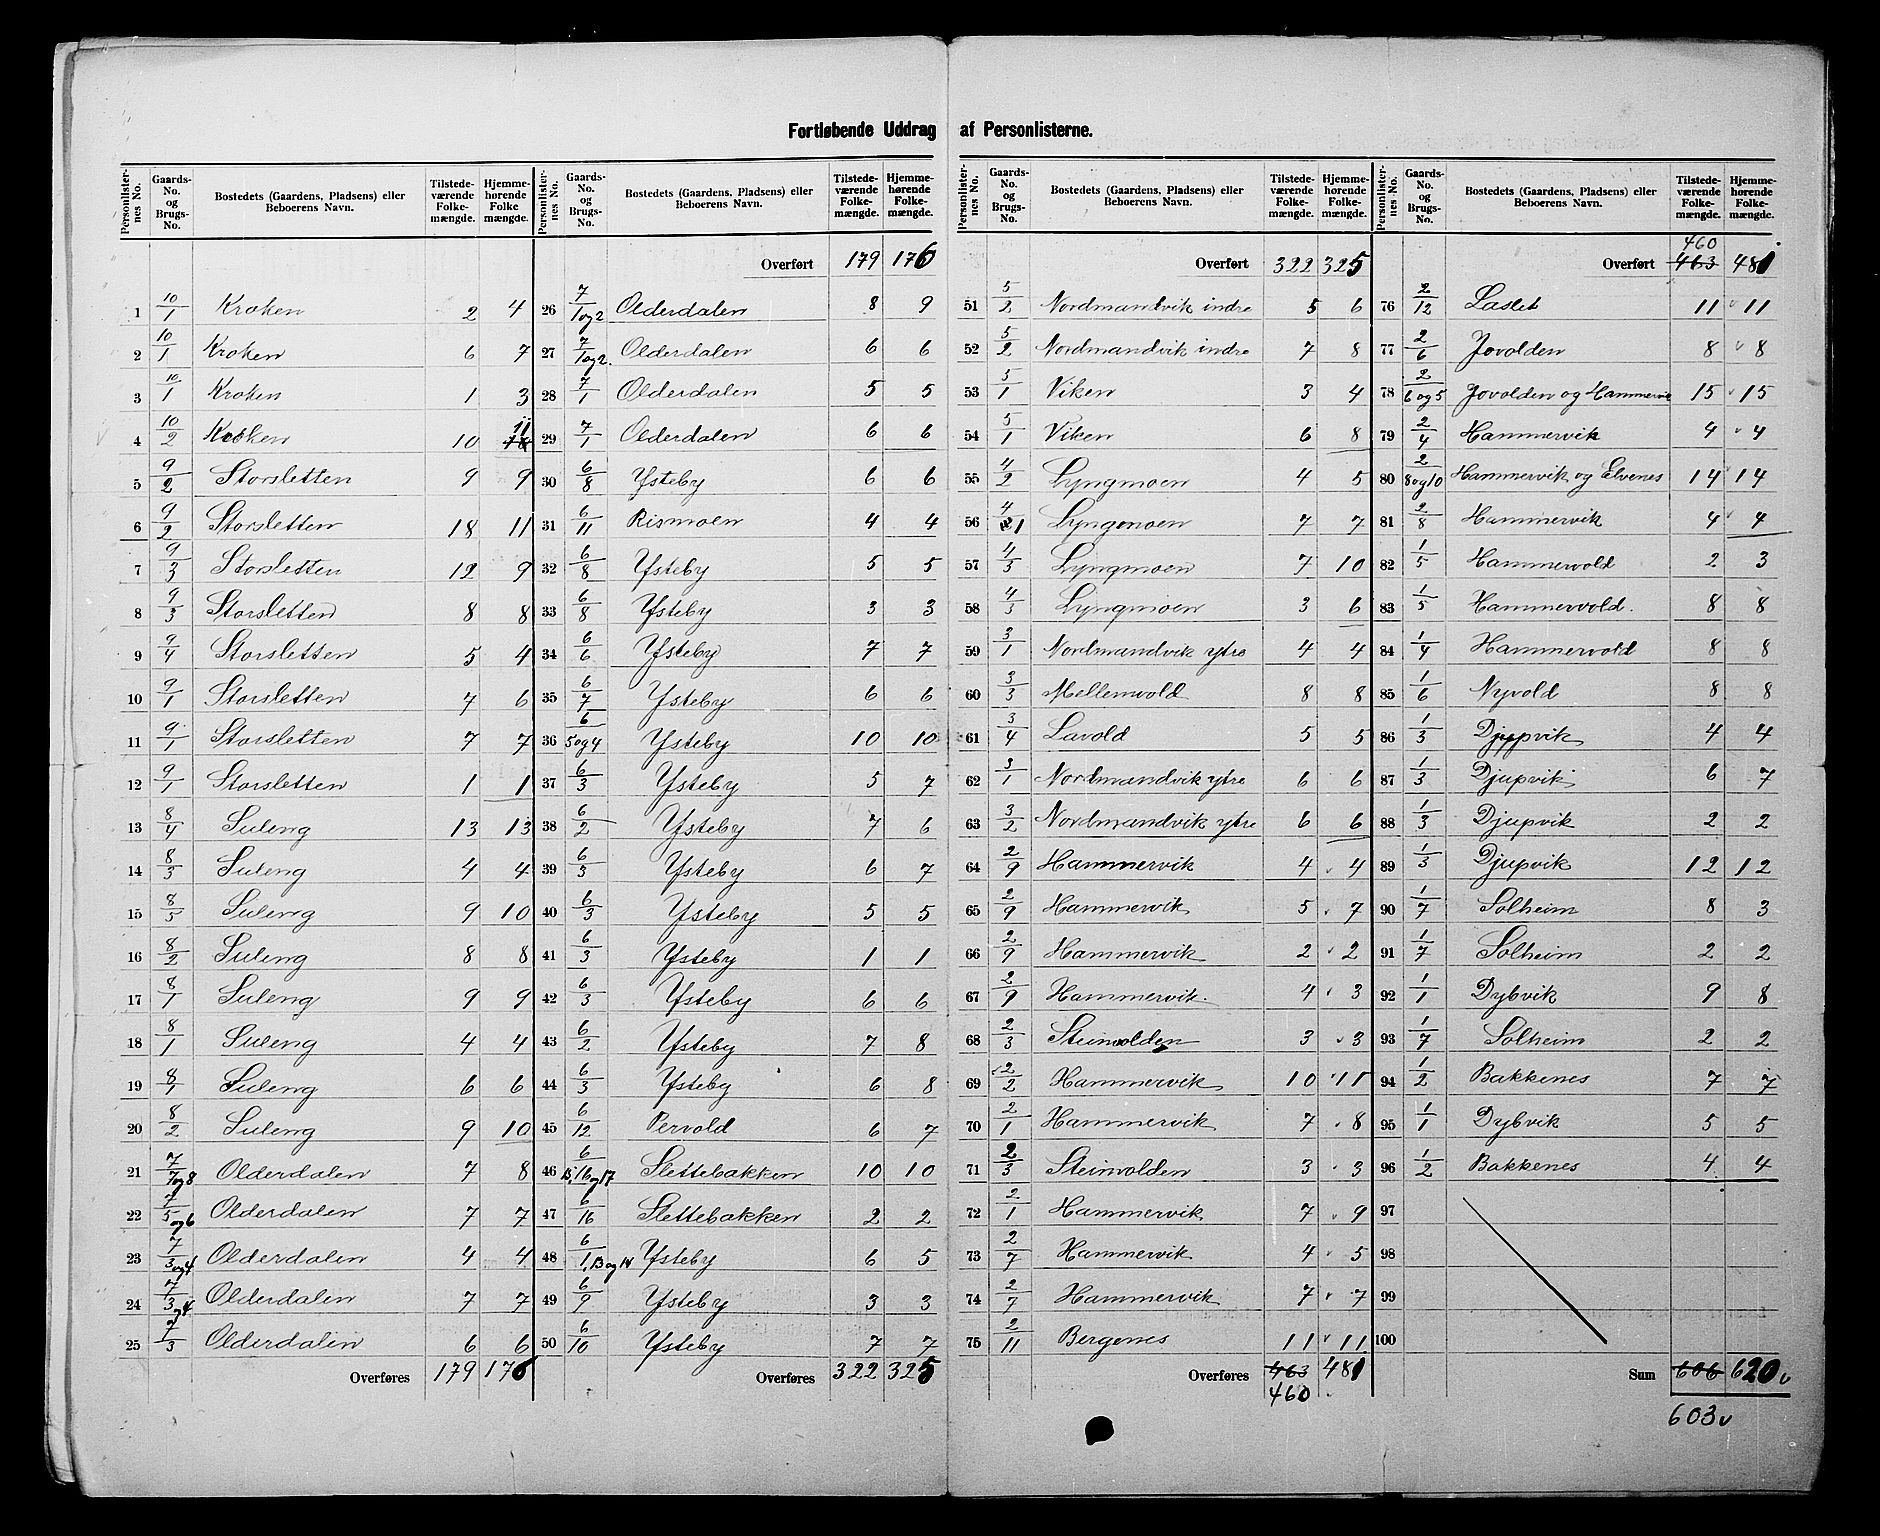 Fortløbende Uddrag af Personlisterne.
Personlister-nes No. Gaards-No. og Brugs-No. Bostedets (Gaardens, Pladsens) eller Beboerens Navn. Tilstede-værende Folke-mængde. Hjemme-hørende Folke mængde.
1 10/1 Kroken 2 4
2 10/1 Kroken 6 7
3 10/1 Kroken 1 3
4 10/2 Kroken 10 11
5 9/2 Storsletten 9 9
6 9/2 Storsletten 18 11
7 9/3 Storsletten 12 9
8 9/3 Storsletten 8 8
9 9/4 Storsletten 5 4
10 9/1 Storsletten 7 6
11 9/1 Storsletten 7 7
12 9/1 Storsletten 1 1
13 8/4 Suleng 13 13
14 8/3 Suleng 4 4
15 8/5 Suleng 9 10
16 8/2 Suleng 8 8
17 8/1 Suleng 9 9
18 8/1 Suleng 4 4
19 8/1 Suleng 6 6
20 8/2 Suleng 9 10
21 7/7og8 Olderdalen 7 8
22 7/5og6 Olderdalen 7 7
23 7/3og4 Olderdalen 4 4
24 7/3og4 Olderdalen 7 7
25 7/3 Olderdalen 6 6
Overføres 179 176
Personlister-nes No. Gaards-No. og Brugs-No. Bostedets (Gaardens, Pladsens) eller Beboerens Navn. Tilstede-værende Folke-mængde. Hjemme-hørende Folke-mængde.
Overført 179 176
26 7/1og2 Olderdalen 8 9
27 7/1og2. Olderdalen 6 6
28 7/1 Olderdalen 5 5
29 7/1 Olderdalen 6 6
30 6/8 Ysteby 6 6
31 6/11 Rismoen 4 4
32 6/8 Ysteby 5 5
33 6/8 Ysteby 3 3
34 6/6 Ysteby 7 7
35 6/7 Ysteby 6 6
36 6/5og4 Ysteby 10 10
37 6/3 Ysteby 5 7
38 6/2 Ysteby 7 6
39 6/3 Ysteby 6 7
40 6/3 Ysteby 5 5
41 6/3 Ysteby 1 1
42 6/3 Ysteby 6 6
43 6/2 Ysteby 7 8
44 6/3 Ysteby 6 8
45 6/12 Pervold 6 7
46 6/15,16og17 Slettebakken 10 10
47 6/16 Slettebakken 2 2
48 6/1,13og14 Ysteby 6 5
49 6/9 Ysteby 3 3
50 6/10 Ysteby 7 7
Overføres 322 325
Personlister-nes No. Gaards-No. og Brugs-No. Bostedets (Gaardens, Pladsens) eller Beboerens Navn. Tilstede-værende Folke-mængde. Hjemme-hørende Folke-mængde.
Overført 322 325
51 5/2 Nordmandvik indre 5 6
52 5/2 Nordmandvik indre 7 8
53 5/1 Viken 3 4
54 5/1 Viken 6 8
55 4/2 Lyngmoen 4 5
56 4/1 Lyngmoen 7 7
57 4/3 Lyngmoen 7 10
58 4/3 Lyngmoen 3 6
59 3/1 Nordmandvik ytre 4 4
60 3/3 Mellemvold 8 8
61 3/4 Lavold 5 5
62 3/1 Nordmandvik ytre 6 6
63 3/2 Nordmandvik ytre 6 6
64 2/9 Hammervik 4 4
65 2/9 Hammervik 5 7
66 2/9 Hammervik 2 2
67 2/9 Hammervik. 4 3
68 2/3 Steinvolden 3 3
69 2/2 Hammervik 10 11
70 2/1 Hammervik 7 8
71 2/3 Steinvolden 3 3
72 2/1 Hammervik 7 9
73 2/7 Hammervik 4 5
74 2/7 Hammervik 7 7
75 2/11 Bergenes 11 11
Overføres 463 481
460
Personlister-nes No. Gaards-No. og Brugs-No. Bostedets (Gaardens, Pladsens) eller Beboerens Navn. Tilstede-værende Folke-mængde. Hjemme-hørende Folke-mængde.
460
Overført 463 481
76 2/12 Laslet 11 11
77 2/6 Jovolden 8 8
78 2/6og5 Jovolden og Hammervik 15 15
79 2/4 Hammervik 4 4
80 2/8og10 Hammervik og Elvenes 14 14
81 2/8 Hammervik 4 4
82 1/5 Hammervold 2 3
83 1/5 Hammervold. 8 8
84 1/4 Hammervold 8 8
85 1/6 Nyvold 8 8
86 1/3 Djupvik 4 4
87 1/3 Djupvik 6 7
88 1/3 Djupvik 2 2
89 1/3 Djupvik 12 12
90 1/7 Solheim 8 3
91 1/7 Solheim 2 2
92 1/1 Dybvik 9 8
93 1/7 Solheim 2 2
94 1/2 Bakkenes 7 7
95 1/1 Dybvik 5 5
96 1/2 Bakkenes 4 4
97
98
99
100
Sum 606 620 v
603 v